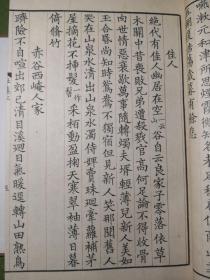 佳人
絕代有佳人幽居在空一云山谷自云良家子零落依草
木關中昔喪敗兄弟遭殺戮官高何足論不得收骨
肉世情惡衰歇萬事隨轉燭夫壻輕薄兒新人美如
玉合昏尚知時鴛鴦不獨宿但見新人笑那聞舊人
哭在山泉水清出山泉水濁侍婢賣珠迴牽蘿補茅
屋摘花不插髮一作采柏動盈掬天寒翠袖薄日暮
倚脩竹
赤谷西崦人家
躋險不自出郊已清目溪迴日氣暖逕轉山田熟鳥